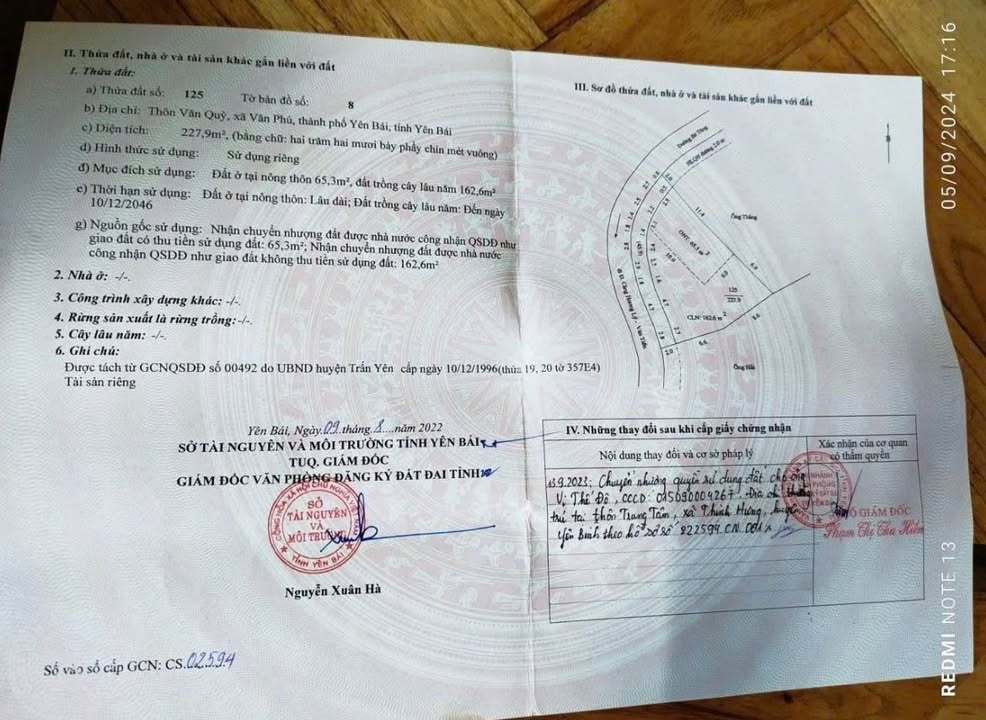 II. Thửa đất, nhà ở và tài sản khác gắn liền với đất
1. Thửa đất:
a) Thửa đất số: 125 Tờ bản đồ số: 8
b) Địa chỉ: Thôn Văn Quỳ, xã Văn Phú, thành phố Yên Bái, tỉnh Yên Bái
c) Diện tích: 227,9m², (bằng chữ: hai trăm hai mươi bảy phẩy chín mét vuông)
d) Hình thức sử dụng: Sử dụng riêng
đ) Mục đích sử dụng: Đất ở tại nông thôn 65,3m², đất trồng cây lâu năm 162,6m²
e) Thời hạn sử dụng: Đất ở tại nông thôn: Lâu dài; Đất trồng cây lâu năm: Đến ngày
10/12/2046
g) Nguồn gốc sử dụng: Nhận chuyển nhượng đất được nhà nước công nhận QSDĐ như
giao đất có thu tiền sử dụng đất: 65,3m²; Nhận chuyển nhượng đất được nhà nước
công nhận QSDĐ như giao đất không thu tiền sử dụng đất: 162,6m²
2. Nhà ở: -/-.
3. Công trình xây dựng khác: -/-.
4. Rừng sản xuất là rừng trồng: -/-.
5. Cây lâu năm: -/-.
6. Ghi chú:
Được tách từ GCNQSDĐ số 00492 do UBND huyện Trấn Yên cấp ngày 10/12/1996(thửa 19, 20 tờ 357E4)
Tài sản riêng
Yên Bái, Ngày 09 tháng 8 năm 2022
SỞ TÀI NGUYÊN VÀ MÔI TRƯỜNG TỈNH YÊN BÁI
TUQ. GIÁM ĐỐC
GIÁM ĐỐC VĂN PHÒNG ĐĂNG KÝ ĐẤT ĐAI TỈNH
CỘNG HÒA XÃ HỘI CHỦ NGHĨA VIỆT NAM
SỞ
TÀI NGUYÊN
VÀ
MÔI TRƯỜNG
TỈNH YÊN BÁI
Nguyễn Xuân Hà
Số vào sổ cấp GCN: CS.02594
III. Sơ đồ thửa đất, nhà ở và tài sản khác gắn liền với đất
Đường Bê Tông
Ông Thắng
11.4
ONT: 65.3 m²
10.0
6.0
6.9
125
227.9
CLN: 162.6 m²
6.6
Ông Hải
IV. Những thay đổi sau khi cấp giấy chứng nhận
Nội dung thay đổi và cơ sở pháp lý
Xác nhận của cơ quan
có thẩm quyền
13.9.2023: Chuyển nhượng quyền sử dụng đất cho ông
Vi Thế Độ, CCCD: 015090004267. Địa chỉ thường
trú tại thôn Trung Tâm, xã Thịnh Hưng, huyện
Yên Bình theo hồ sơ số 822594.CN.001
PHÓ GIÁM ĐỐC
Phạm Thị Thu Hiền
05/09/2024 17:16
REDMI NOTE 13